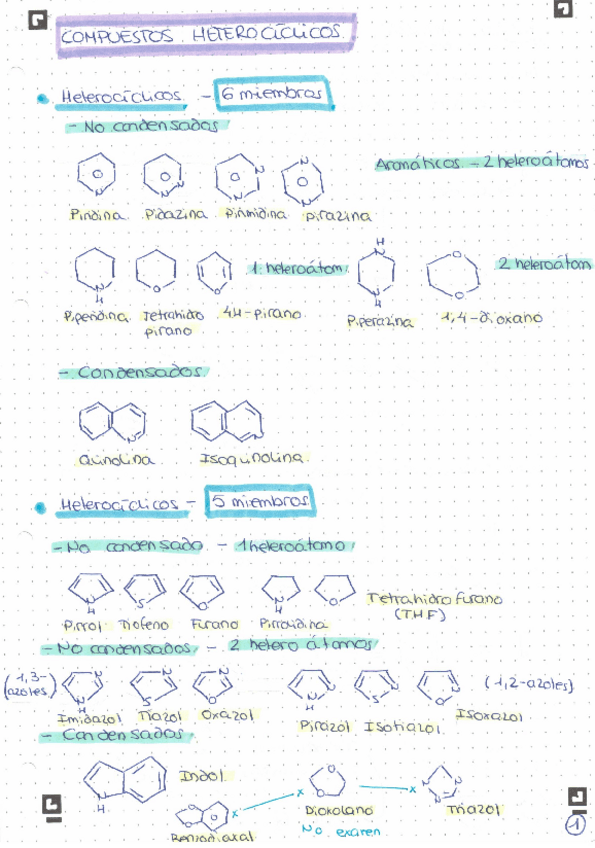 COMPUESTOS HETEROCÍCLICOS.
Heterocíclicos - 6 miembros
- No condensados
Aromáticos - 2 heteroátomos.
N N N N N N N
Piridina Pidazina Pirimidina pirazina
N H O O 1 heteroátom. H N N H O O 2 heteroátom
Piperidina Tetrahidro pirano 4H-pirano Piperazina 1,4-dioxano
- Condensados
N N
Quinolina Isoquinolina
Heterocíclicos - 5 miembros
- No condensado - 1 heteroátomo
N H S O N H O Tetrahidrofurano
(THF)
Pirrol Tiofeno Furano Pirrolidina
- No condensados - 2 heteroátomos
(1,3-azoles) N N H N S N O N N H N S N O (1,2-azoles)
Imidazol Tiazol Oxazol Pirazol Isotiazol Isoxazol
- Condensados
N H Indol
O O x O O x N N N
Benzodioxal Dioxolano Triazol
No examen
1